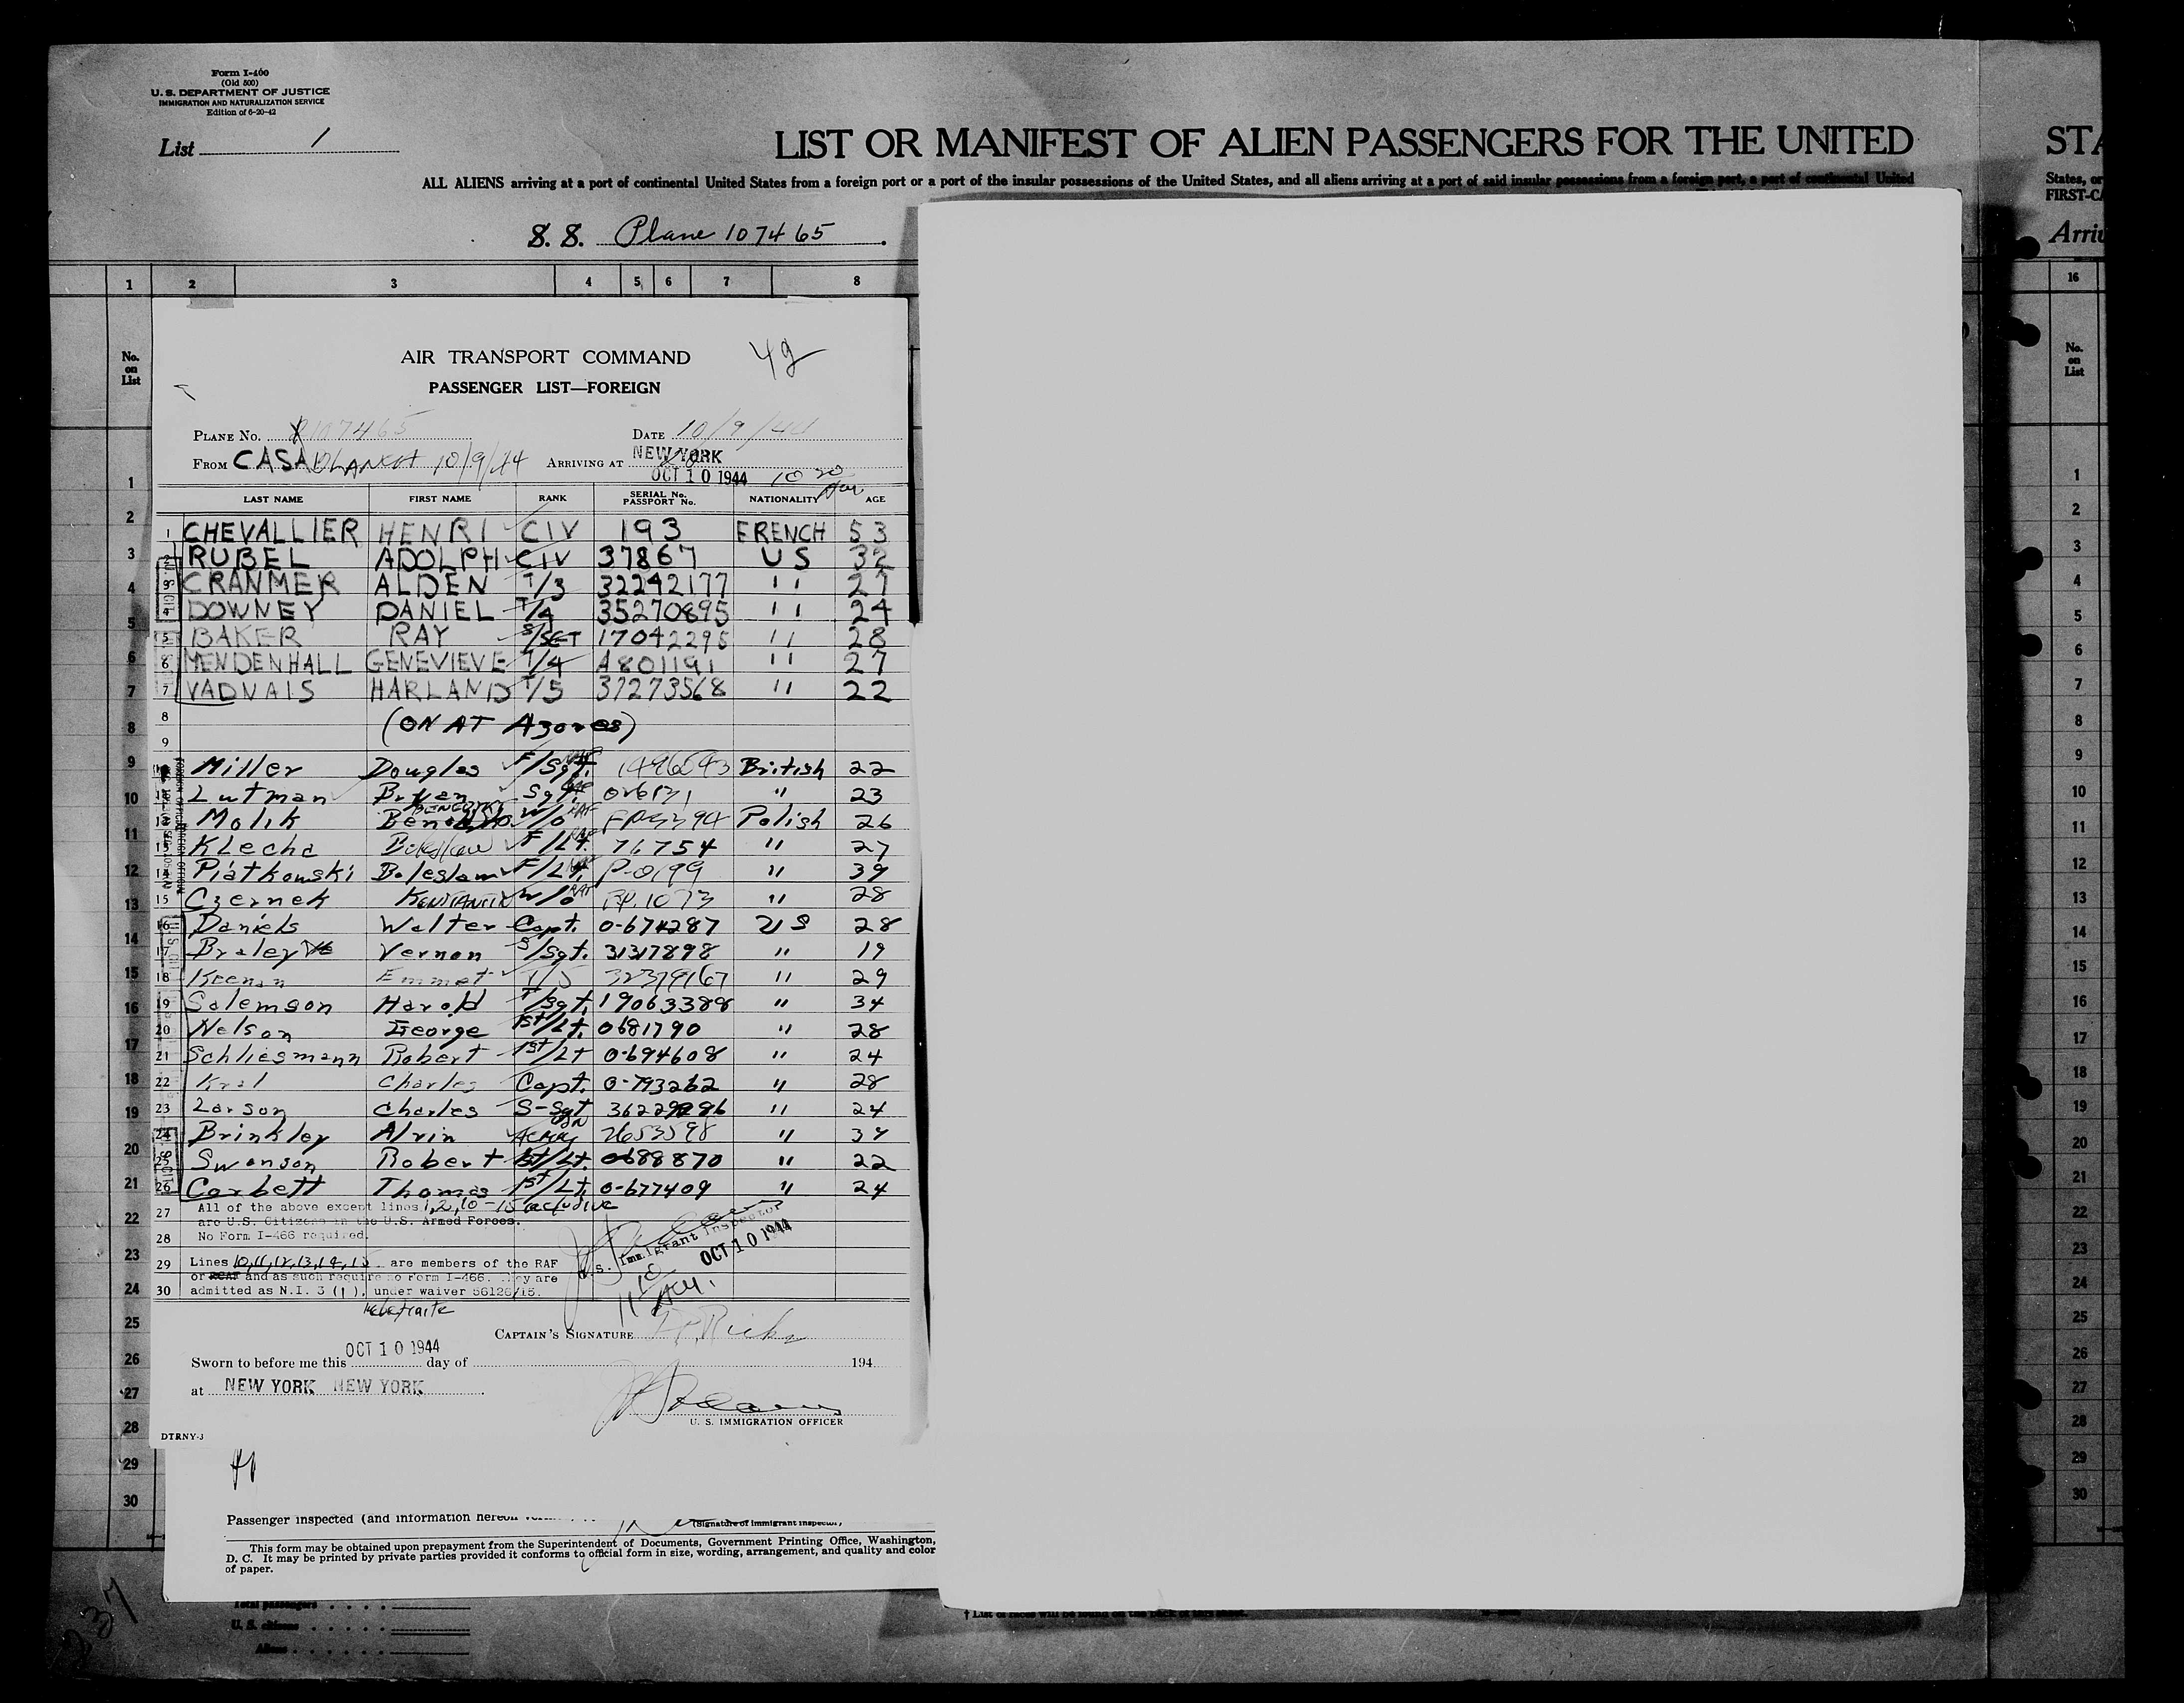 Form I-400
(Old 500)
U. S. DEPARTMENT OF JUSTICE
IMMIGRATION AND NATURALIZATION SERVICE
Edition of 6-20-42
List 1
LIST OR MANIFEST OF ALIEN PASSENGERS FOR THE UNITED
STA
ALL ALIENS arriving at a port of continental United States from a foreign port or a port of the insular possessions of the United States, and all aliens arriving at a port of said insular possessions from a foreign port, a port of continental United
States, or
FIRST-CA
S. S. Plane 107465
Arriv
1 2 3 4 5 6 7 8
16
No. on List
No. on List
AIR TRANSPORT COMMAND
49
PASSENGER LIST—FOREIGN
PLANE No. 107465 DATE 10/9/44
FROM CASABLANCA 10/9/44 ARRIVING AT NEW YORK
OCT 10 1944 10 20 AM
LAST NAME FIRST NAME RANK SERIAL No. PASSPORT No. NATIONALITY AGE
1 CHEVALLIER HENRI CIV 193 FRENCH 53
2 RUBEL ADOLPH CIV 37867 US 32
3 CRANMER ALDEN T/3 32242177 " 27
4 DOWNEY DANIEL T/4 35270895 " 24
5 BAKER RAY S/SGT 17042295 " 28
6 MENDENHALL GENEVIEVE T/4 A801191 " 27
7 VADNAIS HARLAND T/5 37273568 " 22
8 (ON AT Azores)
9
Miller Douglas F/Sgt. 1496593 British 22
Lutman Sgt. " 23
Molik W/O RAF Polish 26
Klecha F/Lt. 76754 " 27
14 Piatkowski Boleslaw F/Lt. P-0199 " 39
15 Czernek W/O " 28
16 Daniels Walter Capt. 0-674287 US 28
17 Braley Vernon S/Sgt. 31317898 " 19
18 Keenan Emmet T/5 32379167 " 29
19 Salemson Harold T/Sgt. 19063388 " 34
20 Nelson George 1st/Lt. 0681790 " 28
21 Schliesmann Robert 1st/Lt 0-694608 " 24
22 Kral Charles Capt. 0-793262 " 28
23 Larson Charles S-Sgt " 24
24 Brinkley Alvin 2653598 " 37
25 Swanson Robert 1st/Lt. 0688870 " 22
26 Corbett Thomas 1st/Lt. 0-677409 " 24
27 All of the above except lines 1, 2, 10-15 inclusive
are U.S. Citizens in the U.S. Armed Forces.
28 No Form I-466 required.
U.S. Immigrant Inspector
OCT 10 1944
29 Lines 10, 11, 12, 13, 14, 15 are members of the RAF
or RCAF and as such require no Form I-466. They are
30 admitted as N.I. 3 (1), under waiver 56126/15.
CAPTAIN'S SIGNATURE
OCT 10 1944
Sworn to before me this day of 194
at NEW YORK NEW YORK
U. S. IMMIGRATION OFFICER
DTRNY-3
Passenger inspected (and information hereon
(Signature of immigrant inspector)
This form may be obtained upon prepayment from the Superintendent of Documents, Government Printing Office, Washington,
D. C. It may be printed by private parties provided it conforms to official form in size, wording, arrangement, and quality and color
of paper.
Total passengers
U. S. citizens
Aliens
† List of races will be found on the back of this sheet.
237